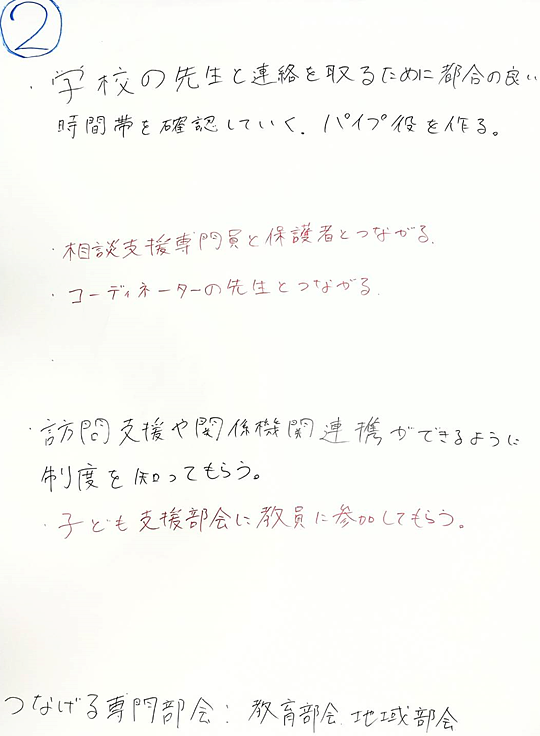 ②
・学校の先生と連絡を取るために都合の良い
時間帯を確認していく、パイプ役を作る。
・相談支援専門員と保護者とつながる。
・コーディネーターの先生とつながる。
・
・訪問支援や関係機関連携ができるように
制度を知ってもらう。
・子ども支援部会に教員に参加してもらう。
つなげる専門部会：教育部会、地域部会